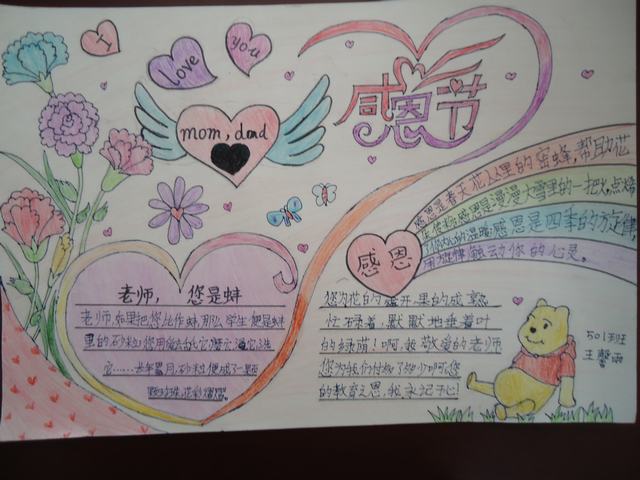 I
love
you
mom, dad
感恩节
感恩是春天花丛里的蜜蜂，帮助花
感恩是漫漫大雪里的一把火，点燃
感恩是四季的方旋律
用旋律触动你的心灵。
感恩
老师， 您是蚌
老师，如果把您比作蚌，那么学生便是蚌
里的砂粒；您用
它……长年累月，砂粒便成了一颗
您为花的盛开，果的成熟
忙碌着，默默地垂着叶
的绿荫！啊，我敬爱的老师
您为我们付出了
的教育之恩，我永记于心！
501班
王馨雨